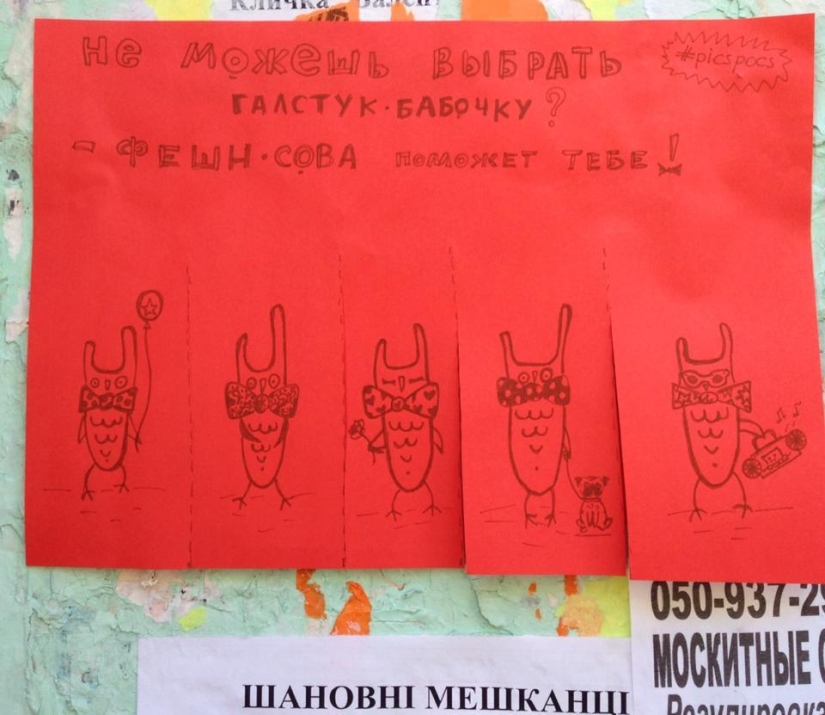 Кличка
Не можешь выбрать
#picspocs
галстук·бабочку?
- Фешн·сова поможет тебе!
050-937-2
МОСКИТНЫЕ
ШАНОВНІ МЕШКАНЦІ